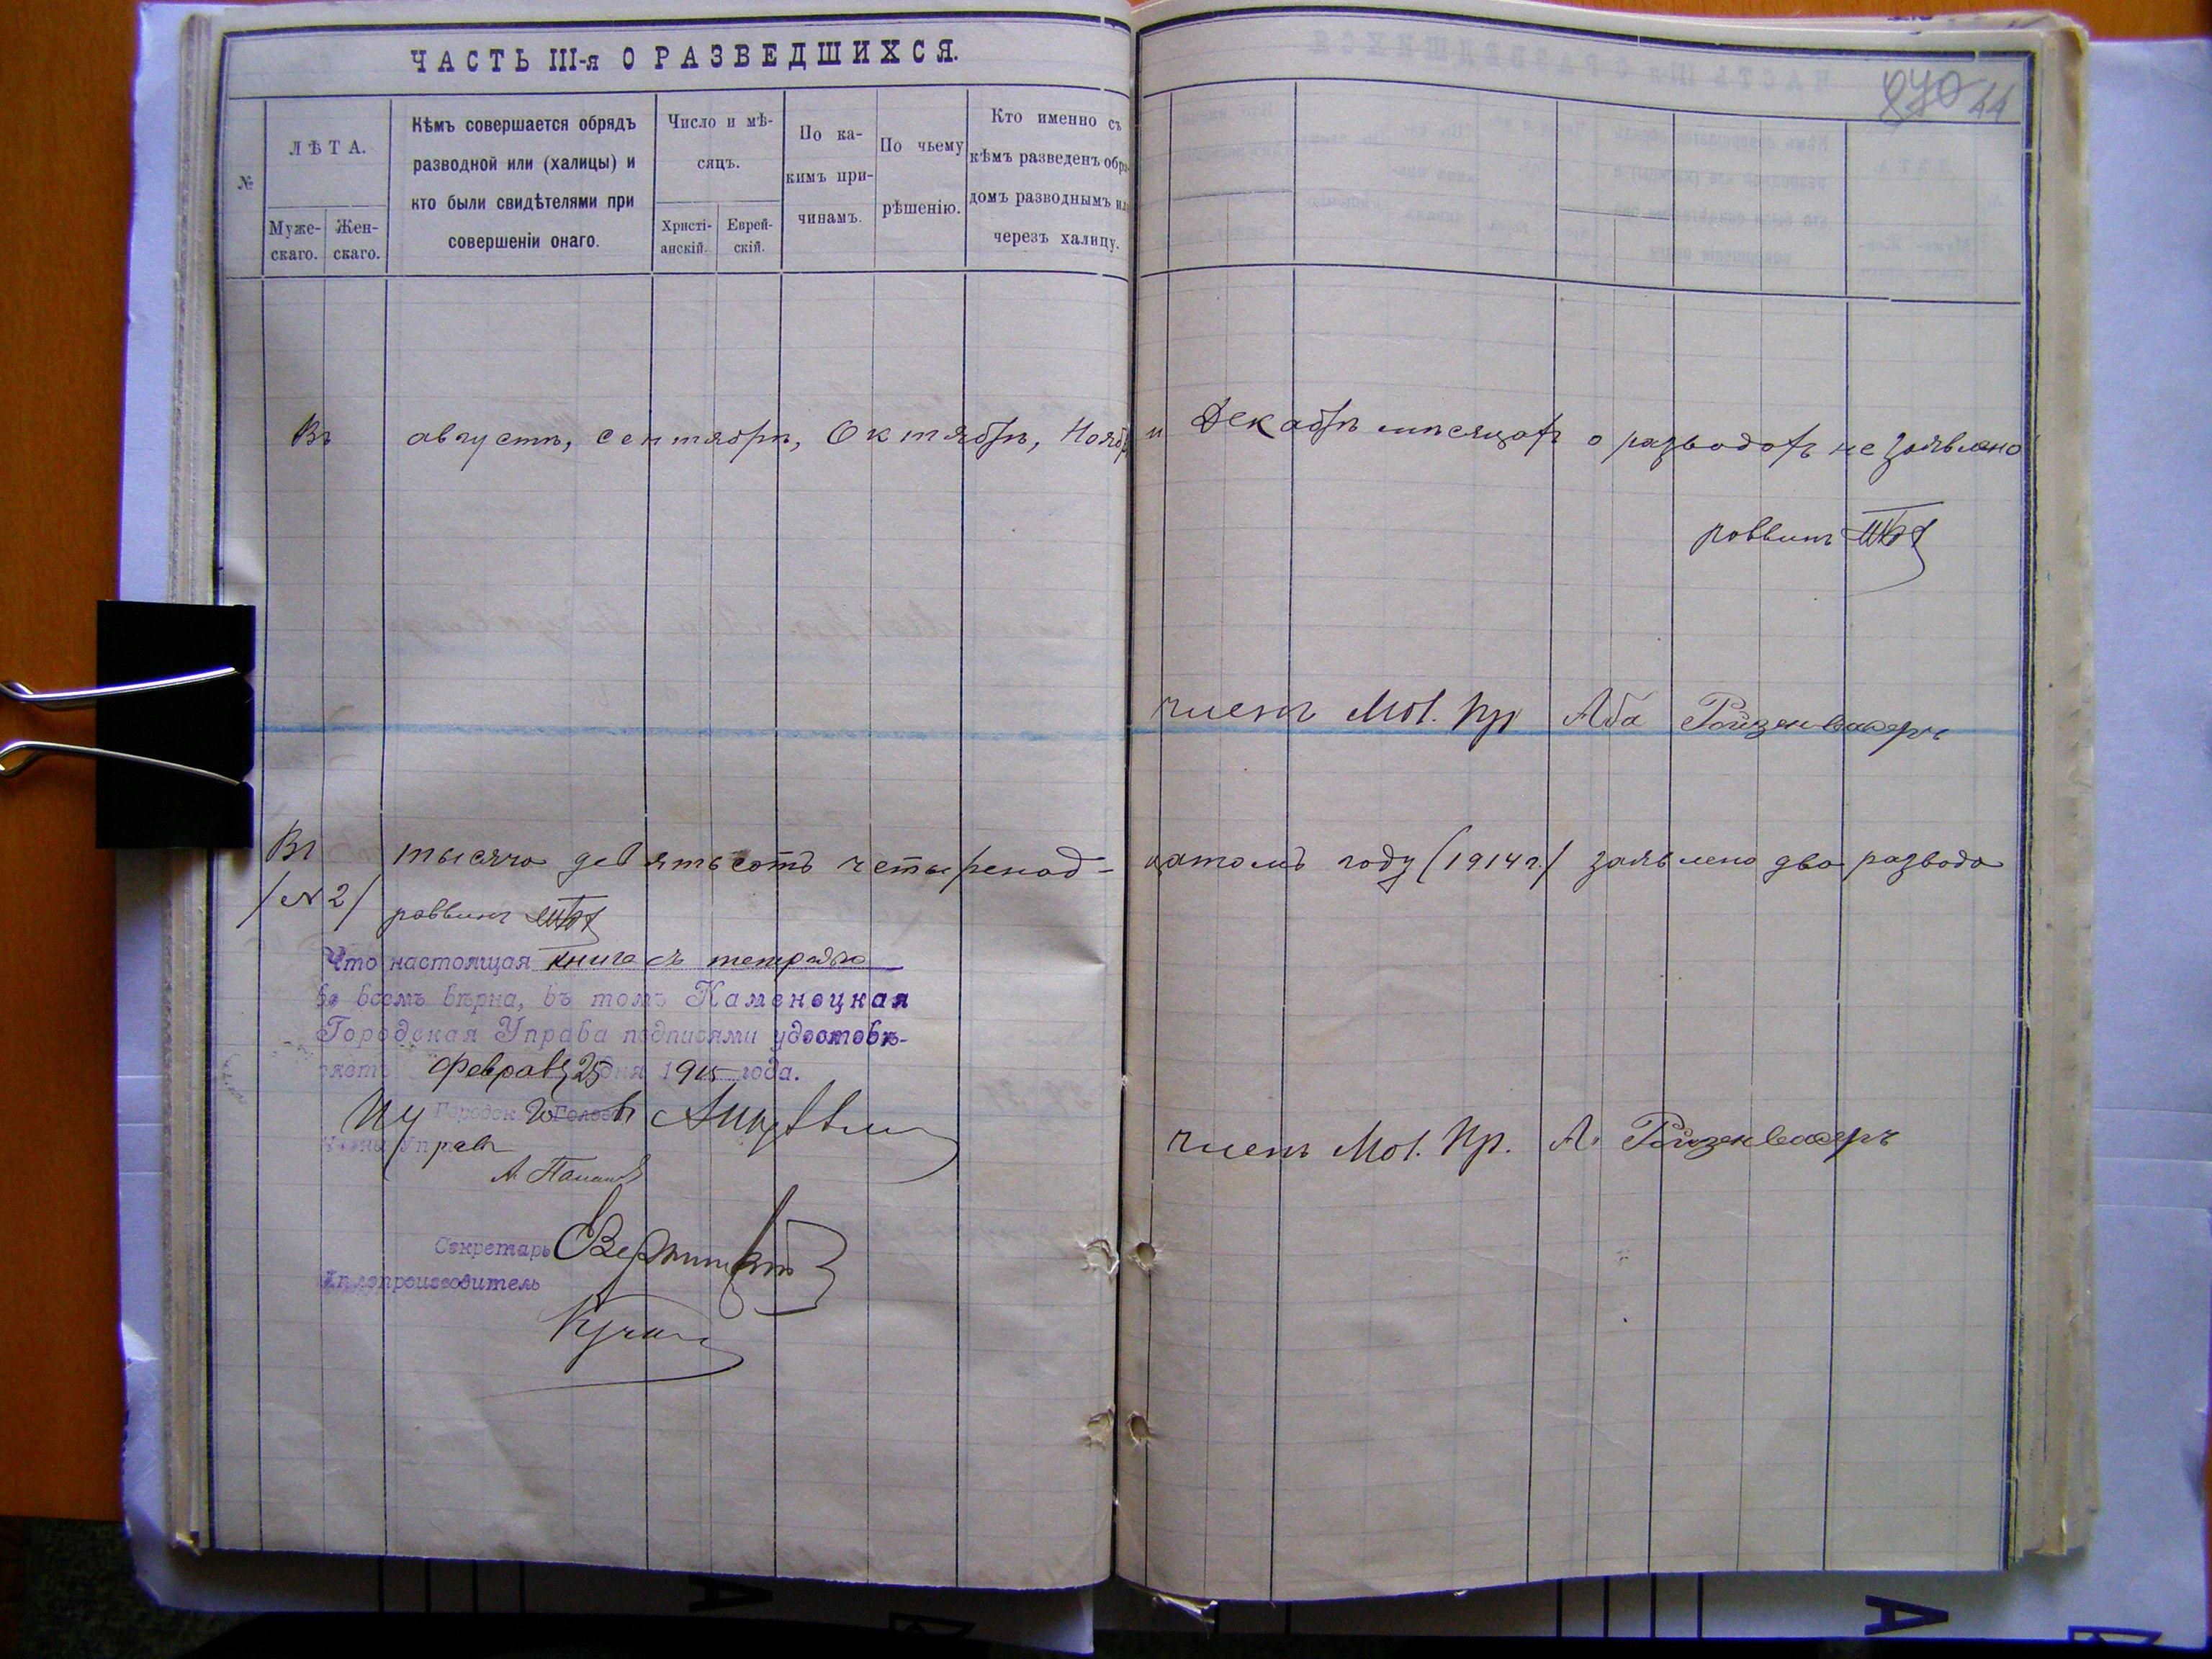 ЧАСТЬ III-я О РАЗВЕДШИХСЯ.
870 44
№
ЛѢТА.
Муже-
скаго.
Жен-
скаго.
Кѣмъ совершается обрядъ
разводной или (халицы) и
кто были свидѣтелями при
совершеніи онаго.
Число и мѣ-
сяцъ.
Христі-
анскій.
Еврей-
скій.
По ка-
кимъ при-
чинамъ.
По чьему
рѣшенію.
Кто именно съ
кѣмъ разведенъ обря-
домъ разводнымъ или
черезъ халицу.
Въ августѣ, сентябрѣ, Октябрѣ, Ноябр и Декабрѣ мѣсяцахъ о разводахъ не заявлено
раввинъ
членъ Мол. Пр Аба Ройзенвасеръ
Въ тысяча девятьсотъ четыренад-цатомъ году (1914 г.) заявлено два развода
/№ 2/ раввинъ
Что настоящая книга съ тетрадью
во всемъ вѣрна, въ томъ Каменецкая
Городская Управа подписями удостовѣ-
ряетъ Февраля 25 дня 1915 года.
Городск Голова
Члены Управы
членъ Мол. Пр. А. Ройзенвасеръ
Секретарь
Дѣлопроизводитель